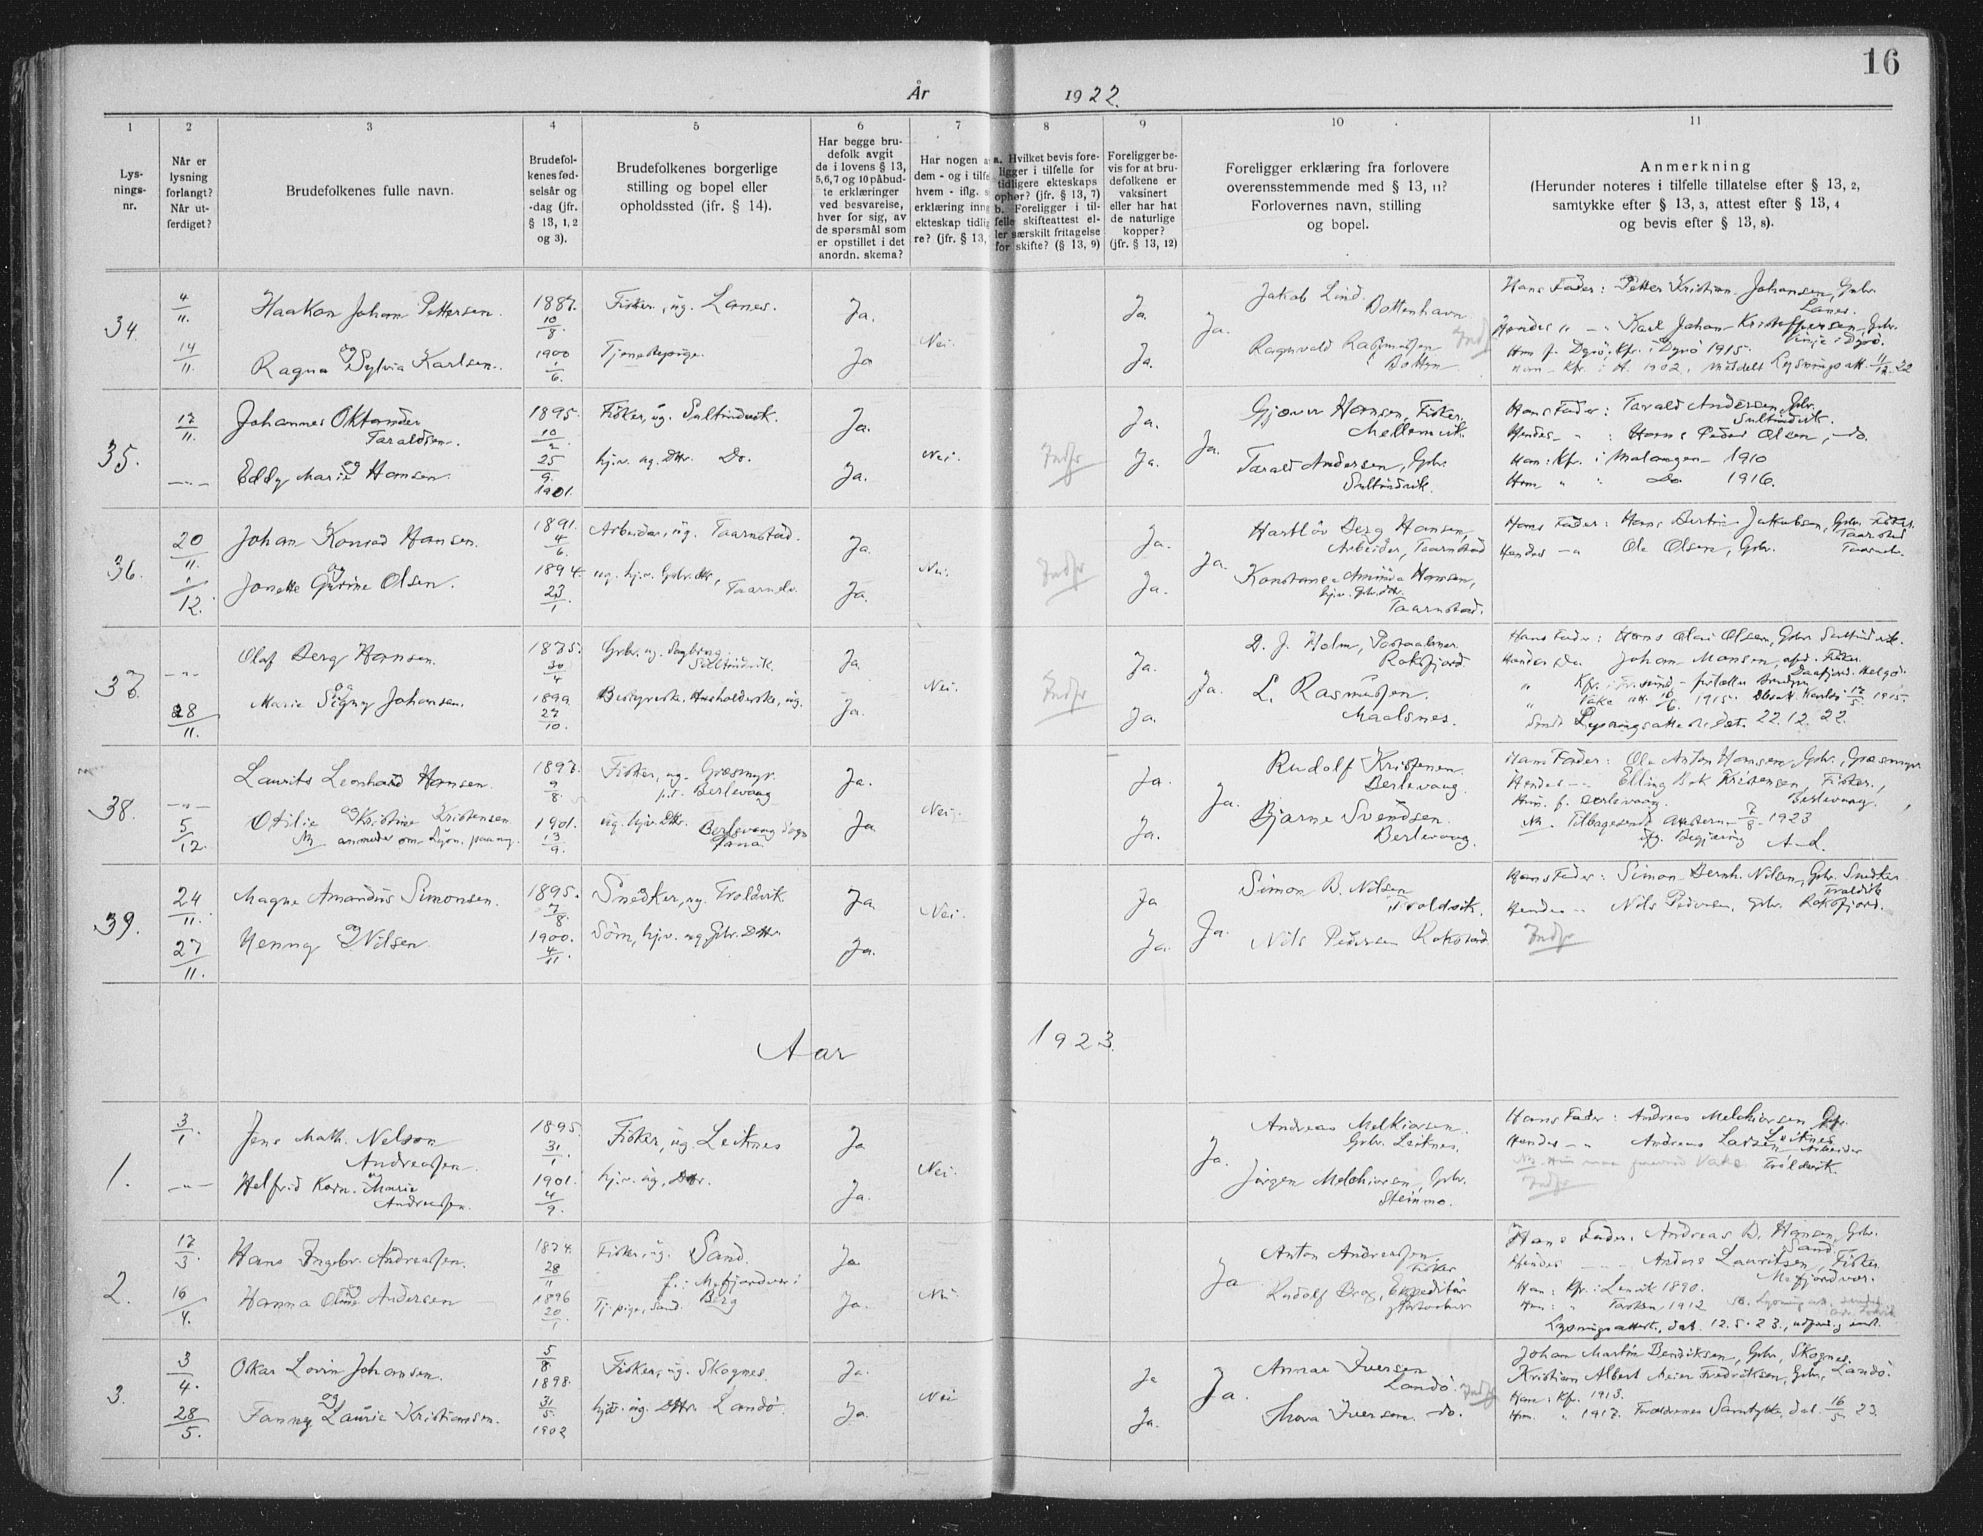 16
År 1922.
1 2 3 4 5 6 7 8 9 10 11
Lys-
nings-
nr.
Når er
lysning
forlangt?
Når ut-
ferdiget?
Brudefolkenes fulle navn.
Brudefol-
kenes fød-
selsår og
-dag (jfr.
§ 13, 1, 2
og 3).
Brudefolkenes borgerlige
stilling og bopel eller
opholdssted (jfr. § 14).
Har begge bru-
defolk avgit
de i lovens § 13,
5, 6, 7 og 10 påbud-
te erklæringer
ved besvarelse,
hver for sig, av
de spørsmål som
er opstillet i det
anordn. skema?
Har nogen a
dem - og i tilfe
hvem - iflg. s
erklæring inng
ekteskap tidlig
re? (jfr. § 13,
a. Hvilket bevis fore-
ligger i tilfelle for
tidligere ekteskaps
ophør? (jfr. § 13, 7)
b. Foreligger i til-
felle skifteattest el-
ler særskilt fritagelse
for skifte? (§ 13, 9)
Foreligger be-
vis for at bru-
defolkene er
vaksinert
eller har hat
de naturlige
kopper?
(jfr. § 13, 12)
Foreligger erklæring fra forlovere
overensstemmende med § 13, 11?
Forlovernes navn, stilling
og bopel.
Anmerkning
(Herunder noteres i tilfelle tillatelse efter § 13, 2,
samtykke efter § 13, 3, attest efter § 13, 4
og bevis efter § 13, 8).
34.
4/11.
14/11.
Haakon Johan Pettersen.
og
Ragna Sylvia Karlsen.
1887.
10/8.
1900
1/6.
Fisker, ug. Lanes.
Tjenestepige.
Ja.
Ja
Nei.
Ja.
Ja.
Ja.
Jakob Lind.
Bottenhavn
Ragnvald Rasmussen
Botten
Indf
Hans Fader: Petter Kristian Johansen, Gbr.
Lanes.
Hendes " - Karl Johan Kristoffersen, Gbr.
i Dyrø.
Hun f. Dyrø, Kfr. i Dyrø 1915.
Lysningsatt. 11/12.22
35.
17/11.
-"-
Johannes Oktander
Taraldsen.
og
Eddy Marie Hansen.
1895.
10/2.
25/9.
1901.
Fisker, ug. Sultindvik.
hjv. ug. Dttr. Do.
Ja.
Ja.
Nei.
Indfr
Ja.
Ja.
Ja.
Gjæver Hansen, Fisker,
Mellemvik.
Tarald Andersen, Gbr.
Sultindvik.
Hans Fader: Tarald Andersen, Gbr.
Sultindvik.
Hendes - " : Hans Peder Olsen, do.
Han: Kfr. i Malangen 1910
Hun " : Do 1916.
36.
20/11.
1/12.
Johan Konrad Hansen.
og
Jonette Gurine Olsen.
1891.
4/6.
1894.
23/1.
Arbeider, ug. Taarnstad.
ug. hjv. Gbr. dtr,
Taarnelv.
Ja.
Ja.
Nei.
Indfr
Ja.
Ja.
Ja.
Hartløv Berg Hansen,
Arbeider, Taarnstad
Konstanse Aminda Hansen,
hjv. Gbr. dtr.
Taarnstad.
Hans Fader: Hans Bertin Jakobsen, Gbr. Fisker.
Taarnstad
Hendes -"- Ole Olsen, Gbr. Taarnelv.
37.
-"-
28/11.
Olaf Berg Hansen.
og
Marie Signy Johansen.
1875.
30/4
1899
27/10.
Gbr. ug. Dagbrug.
Sultindvik.
Bestyreske, Husholderske, ug.
Ja
Ja.
Nei.
Indfr
Ja.
Ja.
Ja.
D. J. Holm, Postaabner
Roksfjord
L. Rasmussen
Maalsnes.
Hans Fader: Hans Olai Olsen, Gbr. Sultindvik.
Hendes Do. Johan Monsen, afd. Fisker
Helgø.
" Vake att. 10/6. 1915. Karlsø 17/5. 1915.
Sendt Lysningsattest dat. 22.12.22.
38.
-"-
5/12.
Laurits Leonhard Hansen.
og
Otilie Kristine Kristensen
NB anmeder om Lysn. paany.
1897.
9/8.
1901.
13/9.
Fisker, ug. Græsmyr.
p.t. Berlevaag
ug. hjv. Dttr. Berlevaag Sogn
Tana.
Ja.
Ja
Nei.
Ja.
Ja.
Ja.
Rudolf Kristensen.
Berlevaag.
Bjarne Svendsen.
Berlevaag.
Hans Fader: Ole Anton Hansen, Gbr., Græsmyr.
Hendes -"- Elling Bek Kristensen, Fisker,
Berlevaag.
Hun. f. Berlevaag.
NB. Tilbagesendt Attestern 7/8 - 1923
efg. Begjæring A-L.
39.
24/11.
27/11.
Magne Amandus Simonsen.
og
Henny Nilsen.
1895.
7/8.
1900.
4/11.
Snedker, ug. Troldvik.
Sørn, hjv. ug. Gbr. Dttr.
Ja
Ja.
Nei.
Ja
Ja.
Ja.
Simon B. Nilsen
Troldvik.
Nils Pedersen Rokstad.
Hans Fader: Simon Bernh. Nilsen, Gbr. Snedker.
Troldvik
Hendes -"- Nils Pedersen, Gbr. Roksfjord.
Indfr
Aar 1923.
1.
3/1.
-"-
Jens Math. Nelson
Andreassen.
og
Helfrid Korn. Marie
Andreassen.
1895.
31/1.
1901.
4/9.
Fisker, ug. Leiknes
hjv. ug. Dttr.
Ja
Ja.
Nei
Ja.
Andreas Melkiorsen.
Gbr. Leiknes.
Jørgen Melchiorsen, Gbr.
Steinmo.
Hans Fader: Andreas Melchiorsen Gbr.
Leiknes
Hendes -"- Andreas Larsen Arbeider
Troldvik.
Indfr
2.
17/3.
16/4.
Hans Ingebr. Andreassen.
og
Hanna Oline Andersen
1874.
28/11
1896
20/1
Fisker, ug. Sand.
f. i Mefjordvær i
Berg
Tj. pige, Sand.
Ja.
Ja.
Nei
Ja
Anton Andreassen,
Fisker
Rudolf Brox, Expeditør
Hans Fader. Andreas D. Hansen, Gbr.
Sand.
Hendes - Anders Lauritsen, Fisker
Mefjordvær.
Han: Kfr. i Lenvik 1890.
Hun: " Torsken 1912
Lysningsattest, dat. 12.5.23.,
3.
3/4.
28/5.
Oskar Lorin Johansen.
og
Fanny Laurie Kristiansen.
5/8
1898.
31/5.
1902
Fisker, ug. Skognes.
hjv. ug. Dttr. Landø.
Ja.
Ja.
Nei
Ja
Ja.
Ja.
Annar Iversen
Landø.
Thora Iversen do.
Indfr
Johan Martin Bendiksen, Gbr, Skognes.
Kristian Albert Meier Fredriksen, Gbr, Landø.
Han: Kfr. 1913.
Hun. " 1917. Forældrenes Samtykke, dat. 16/5 23.